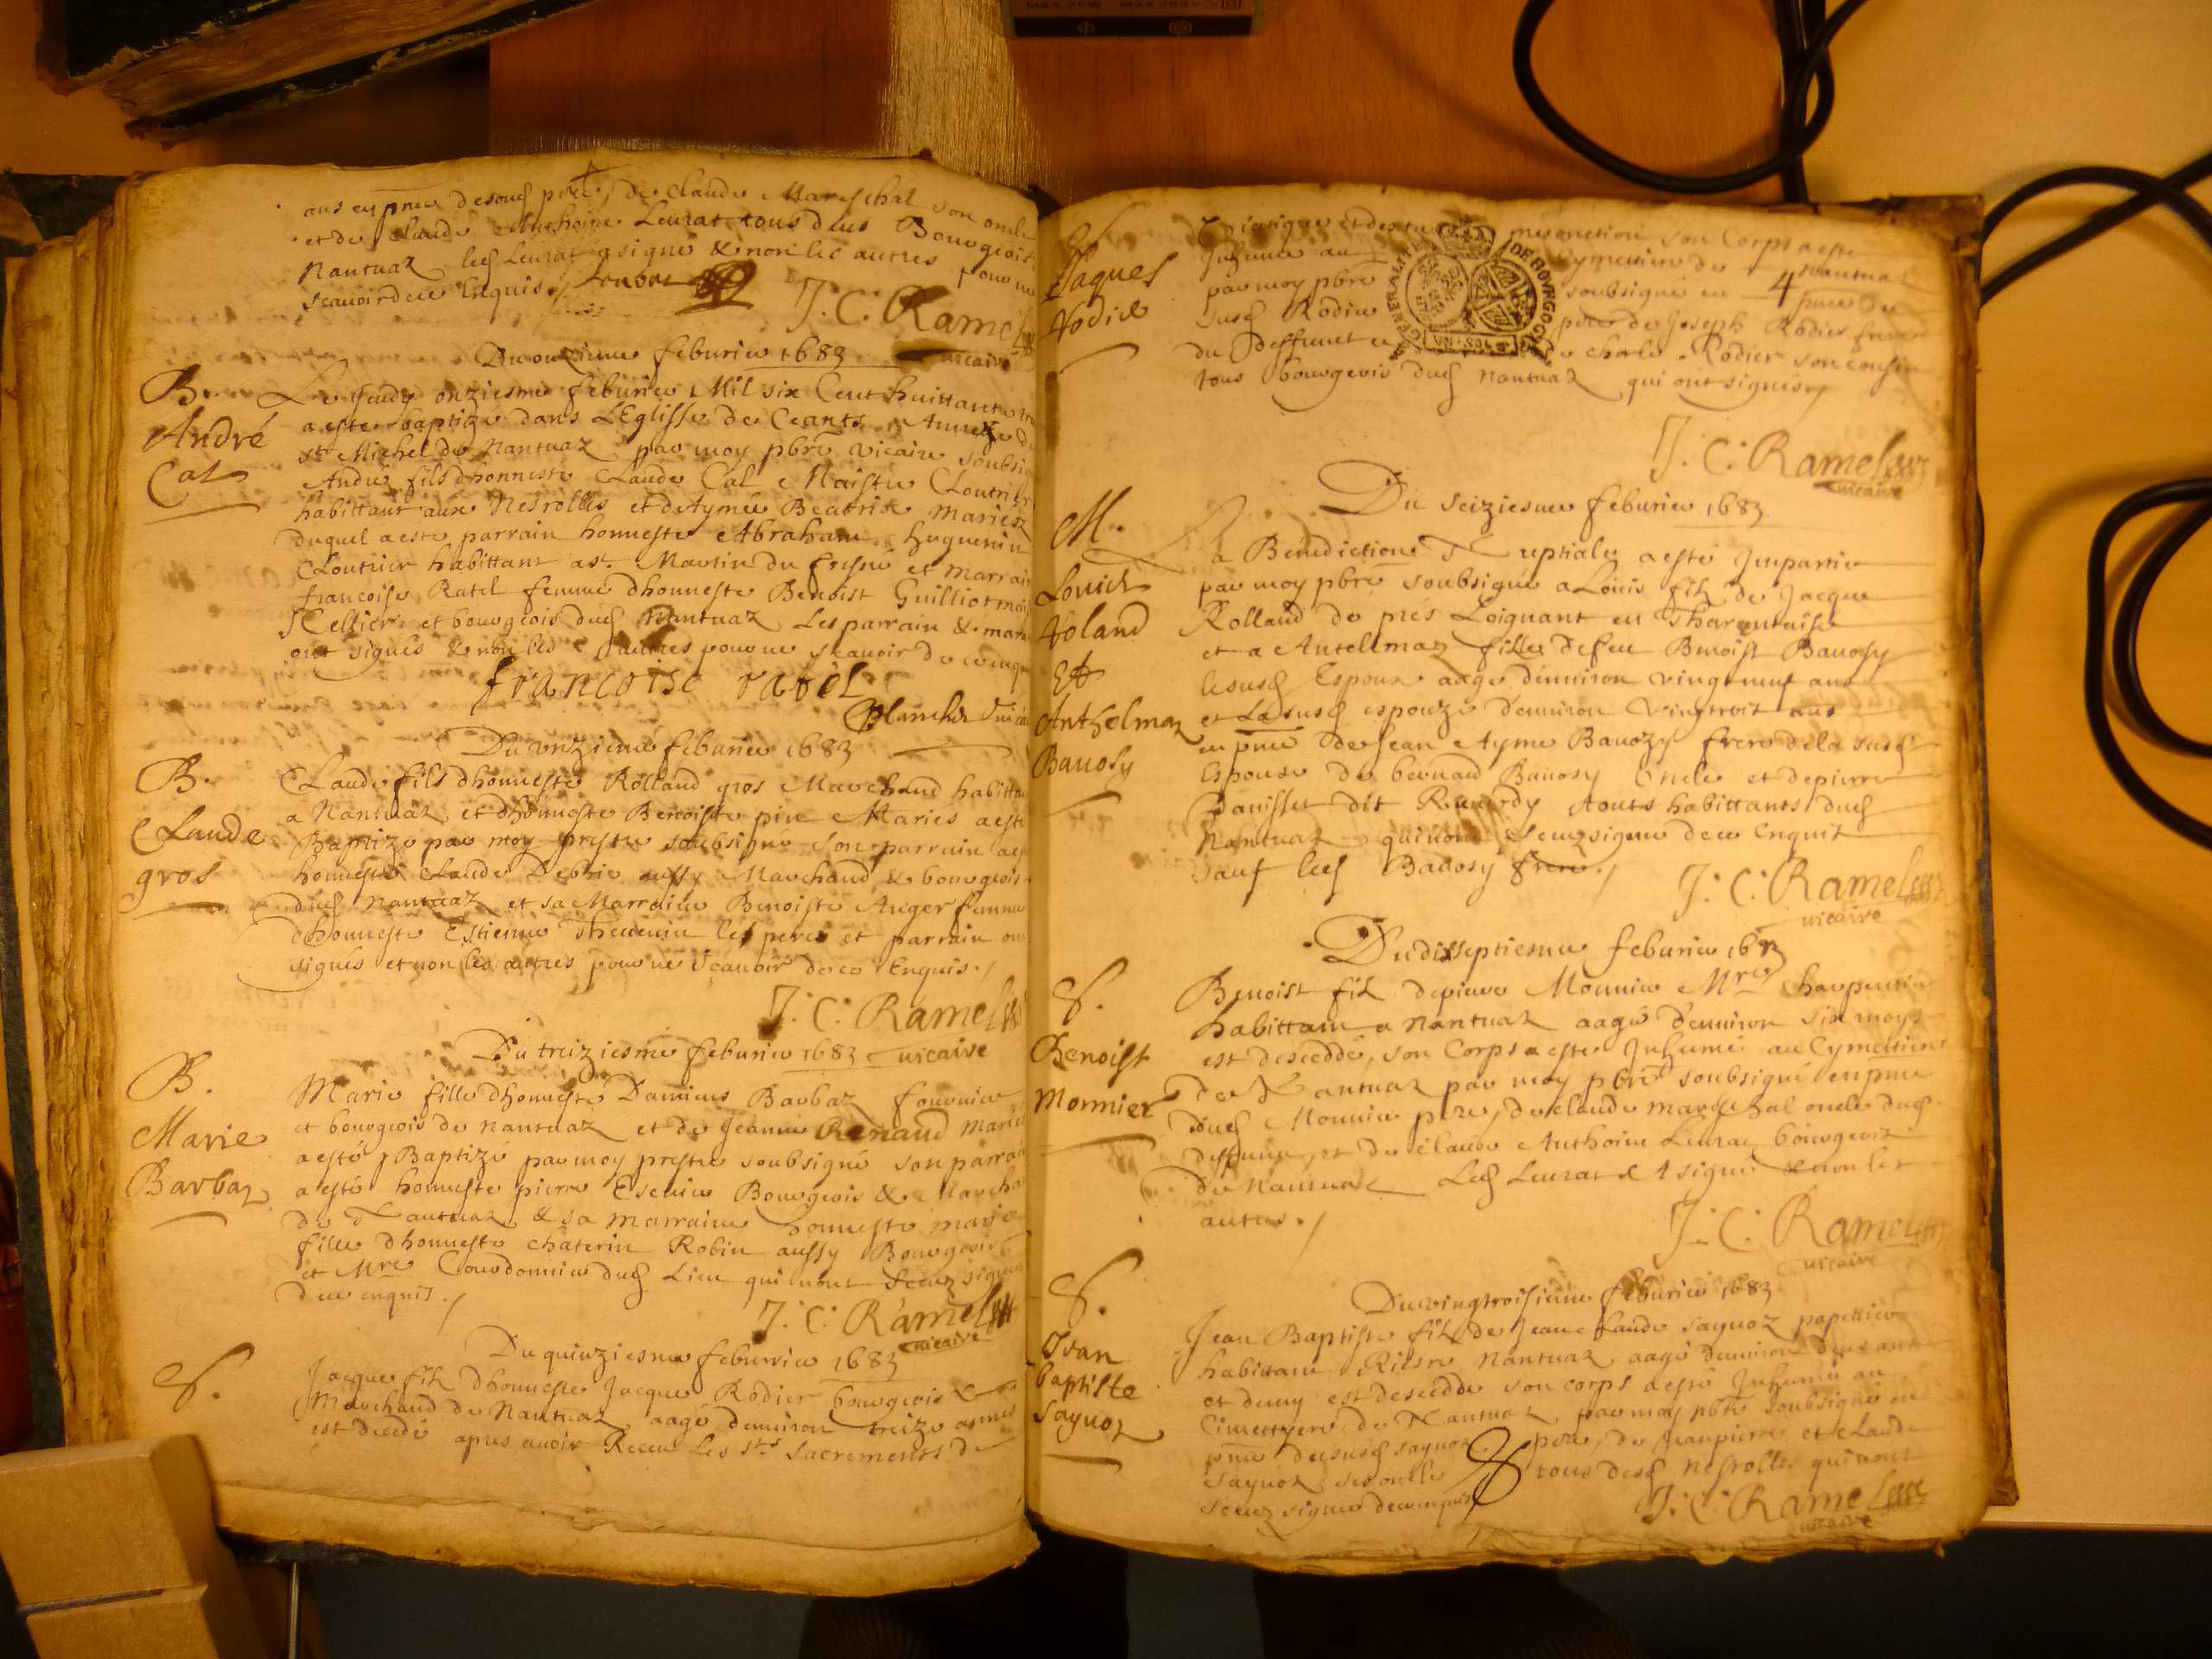 ans en pnce desond pere, de Claude Mareschal son oncle
et de Claude Anthoine Leurat tous deus Bourgeois
Nantuaz led Leurat a signé & non les autres pour ne
scavoir de ce Enquis./ Leurat
J. C. Ramel
vicaire
Du onzieme feburier 1683
B.
André
Cat
Le Jeudy onziesme feburier Mil six Cent huittante
a este baptizé dans LEglisse de Ceants Annexe
st Michel de Nantuaz par moy pbre vicaire soubsi
André fils dhonneste Claude Cat Maistre Cloutrier
habittant aux Nesrolles et de Aymée Beatrix mariés
duquel a este parrain honneste Abraham huguenin
Cloutrier habittant a st. Martin du fresne et marrai
francoise Ratel femme dhonneste Benoist Guilliot
Sellier et bourgeois dud Nantuaz Les parrain & mar
ont signés & non les autres pour ne scavoir de ce enq
francoise ratel
Planchet
Du onzieme feburier 1683
B.
Claude
gros
Claude fils dhonneste Rolland gros Marchand habitta
a Nantuaz et dhonneste Benoiste pin Mariés a este
Baptizé par moy prestre soubsigné son parrain a es
honneste Claude Debrie aussy Marchand & bourgeois
dud Nantuaz et sa Marraine Benoiste Auger femme
dhonneste Estienne Thevenin les peres et parrain on
signés et non les autres pour ne scavoir de ce Enquis./
J. C. Ramel
vicaire
Du treiziesme feburier 1683
B.
Marie
Barbaz
Marie fille dhonneste Damians Barbaz fournier
et bourgeois de Nantuaz et de Jeanne Renand mariés
a esté Baptizé par moy prestre soubsigné son parrai
a esté honneste pierre Esenier Bourgeois & Marcha
de Nantuaz & sa marraine honneste marie
fille dhonneste Chaterin Robin aussy Bourgeois
et Mre Courdonnier dud Lieu qui nont sceuz signer
de ce enquis./
J. C. Ramel
vicaire
Du quinziesme feburier 1683
S.
Jacque filz dhonneste Jacque Rodier bourgeois &
Marchand de Nantuaz aagé denviron treize annes
est decedé apres avoir Receu Les sts sacrements de
S
Jaques
Rodier
GENERALITE DE BOVRGOGNE
VN SOL
4
Inhumé au Cymettiere de Nantuaz
par moy pbre soubsigné en pnce du
susd Rodier pere de Joseph Rodier frere
du deffunct et de charle Rodier son cousin
tous bourgeois dud Nantuaz qui ont signés./
J. C. Ramel
vicaire
Du seiziesme feburier 1683
M.
Louich
Roland
Et
Anthelmaz
Bauosy
La Benediction Nuptiale a esté Jmpartie
par moy pbre soubsigné a Loüis filz de Jacque
Rolland de prés Loignant en Tharentaise
et a Antelmaz fille de feu Benoist Bauosy
le susd Espoux aagé denviron vingt neuf ans
et La susd espouze denviron vingt troit ans
en pnce de Jean Ayme Bauozy frere dela susd
Espouse de bernard Bauosy Oncle et de pierre
Panisset dit Ravardy touts habittants dud
Nantuaz qui nont sceuz signer de ce Enquit
sauf led Bauosy frere./
J. C. Ramel
vicaire
Du disseptiesme feburier 1683
S.
Benoist
Monnier
Benoist filz de pierre Monnier Mre charpentier
habittant a Nantuaz aagé denviron six moys
est desceddé, son Corps a este Inhumé au Cymettiere
de Nantuaz par moy pbre soubsigné en pnce
dud Monnier pere, de Claude mareschal oncle dud
deffunct, et de Claude Anthoine Leurat bourgeois
de Nantuaz Led Leurat a signé & non les
autres./
J. C. Ramel
vicaire
Du vingtroisieme feburier 1683
S.
Jean
baptiste
Saynoz
Jean Baptiste filz de Jean Claude Saynoz papettier
habittant Riere Nantuaz aagé denviron deux ans
et demy est desceddé son corps a esté Inhumé au
Cimettyere de Nantuaz par moy pbre soubsigné en
pnce du susd Saynoz pere, de Jean pierre et Claude
Saynoz ses oncles tous desd Nesrolles qui nont
sceuz signer de ce enquis
J. C. Ramel
vicaire